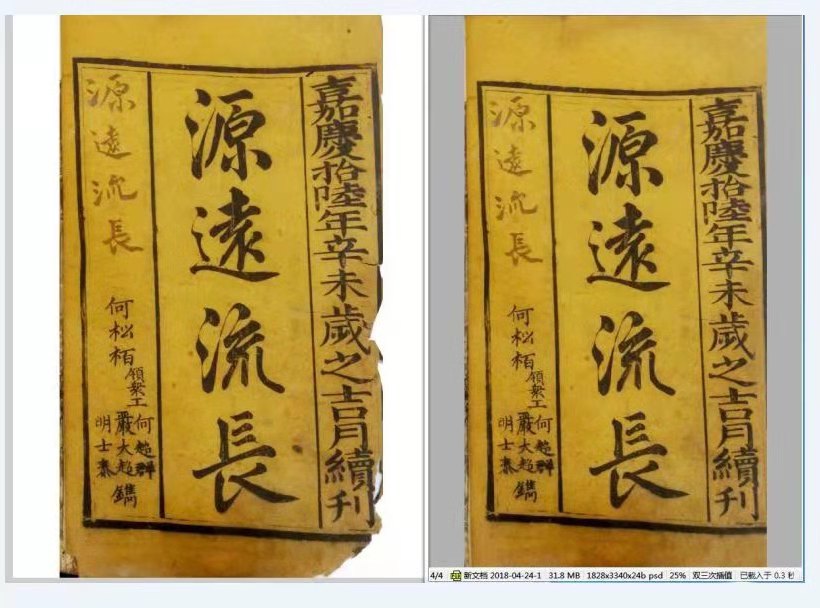 嘉慶拾陸年辛未歲之吉月續刊
源遠流長
源遠流長
何松栢領衆工
何超群
嚴大超鐫
明士泰
嘉慶拾陸年辛未歲之吉月續刊
源遠流長
源遠流長
何松栢領衆工
何超群
嚴大超鐫
明士泰
4/4 新文档 2018-04-24-1 31.8 MB 1828x3340x24b psd 25% 双三次插值 已载入于 0.3 秒